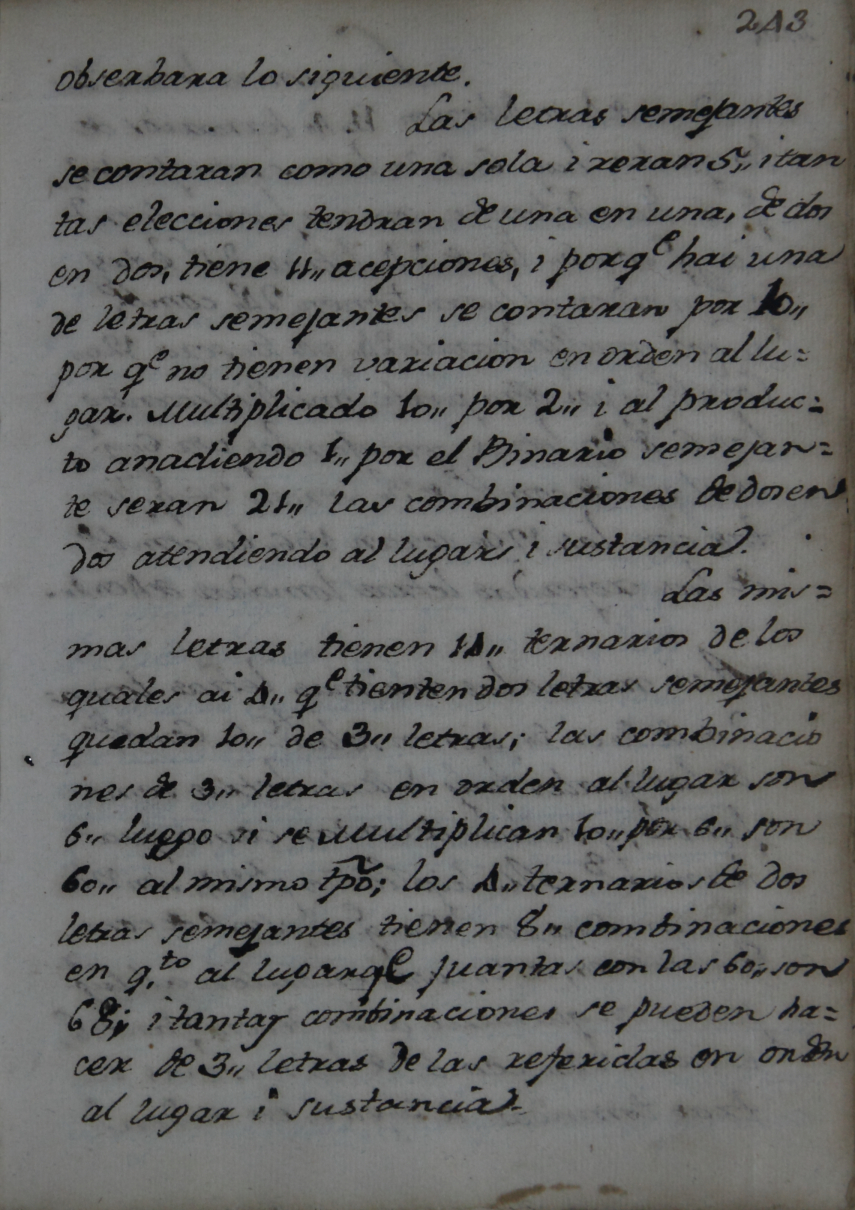 243
obserbara lo siguiente.
Las letras semejantes
se contaran como una sola i seran 5,, i tan
tas elecciones tendran de una en una, de dos
en dos, tiene 11,, acepciones, i porq.e hai una
de letras semejantes se contaran por 10,,
por q.e no tienen variacion en orden al lu=
gar. Multiplicado 10,, por 2,, i al produc=
to anadiendo 1,, por el Binario semejan=
te seran 21,, las combinaciones de dos en
dos atendiendo al lugar i sustancia.
Las mis=
mas letras tienen 14,, ternarios de los
quales ai 4,, q.e tienten dos letras semejantes
quedan 10,, de 3,, letras; las combinacio
nes de 3,, letras en orden al lugar son
6,, luego si se Multiplican 10,, por 6,, son
60,, al mismo tpõ; los 4,, ternarios de dos
letras semejantes tienen 8,, combinaciones
en q.to al lugar q.e juantas con las 60,, son
68; i tantas combinaciones se pueden ha=
cer de 3,, letras de las referidas en orden
al lugar i sustancia.